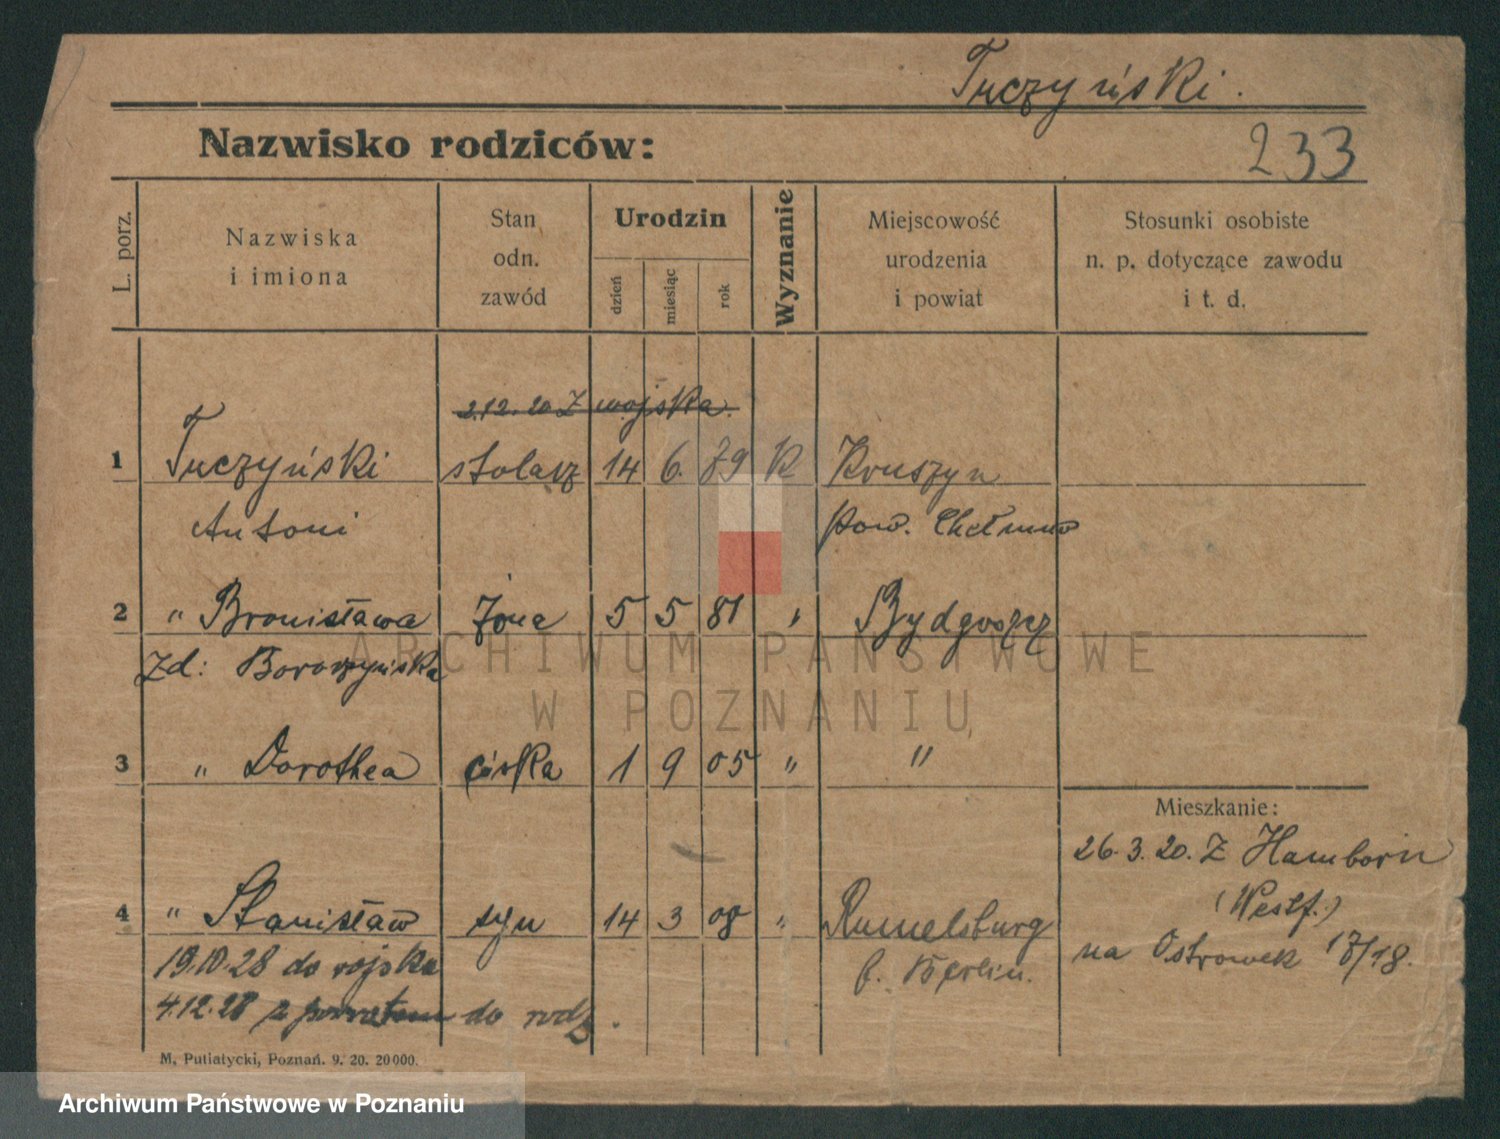 Tuczyński.
Nazwisko rodziców:
233
L. porz.
Nazwiska
i imiona
Stan
odn.
zawód
Urodzin
dzień
miesiąc
rok
Wyznanie
Miejscowość
urodzenia
i powiat
Stosunki osobiste
n. p. dotyczące zawodu
i t. d.
2.12.20 Z wojska.
1 Tuczyński stolarz 14 6. 79 K Kruszyn
Antoni pow. Chełmno
2 " Bronisława żona 5 5 81 " Bydgoszcz
zd: Boroszyńska
3 " Dorothea córka 1 9 05 " "
Mieszkanie:
26.3.20. Z Hamborn
(Westf.)
4 " Stanisław syn 14 3 08 " Rumelsburg
na Ostrowek 17/18.
19.10.28 do wojska b. Berlin.
4.12.28 z powrotem do rodz.
M. Putiatycki, Poznań. 9. 20. 20000.
ARCHIWUM PAŃSTWOWE
W POZNANIU
Archiwum Państwowe w Poznaniu